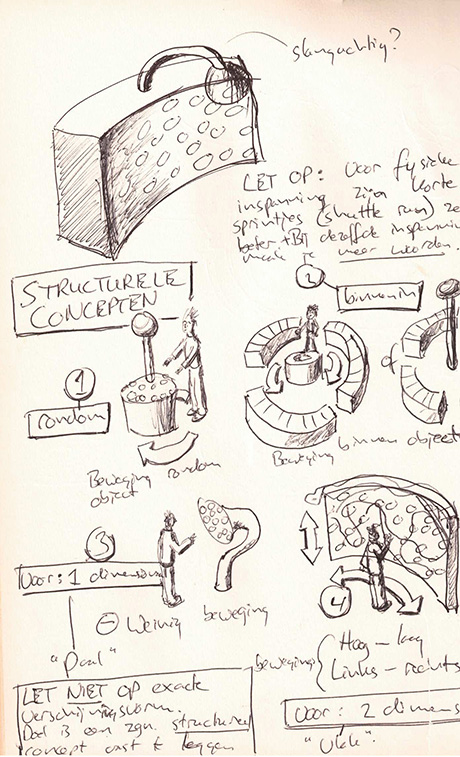 slangachtig?
LET OP: Voor fysieke
inspanning zijn korte
sprintjes (shuttle run)
beter. + Bij dezelfde inspanning
meer worden.
STRUCTURELE
CONCEPTEN
2
binnenin
1
rondom
of
Beweging rondom
object
Beweging binnen object
3
Voor: 1 dimension
4
⊖ Weinig beweging
"Paal"
beweging
Hoog – laag
Links – rechts
LET NIET OP exacte
verschijningsvorm.
Doel is een zgn. structureel
concept vast te leggen
Voor: 2 dimens
"Vlak"